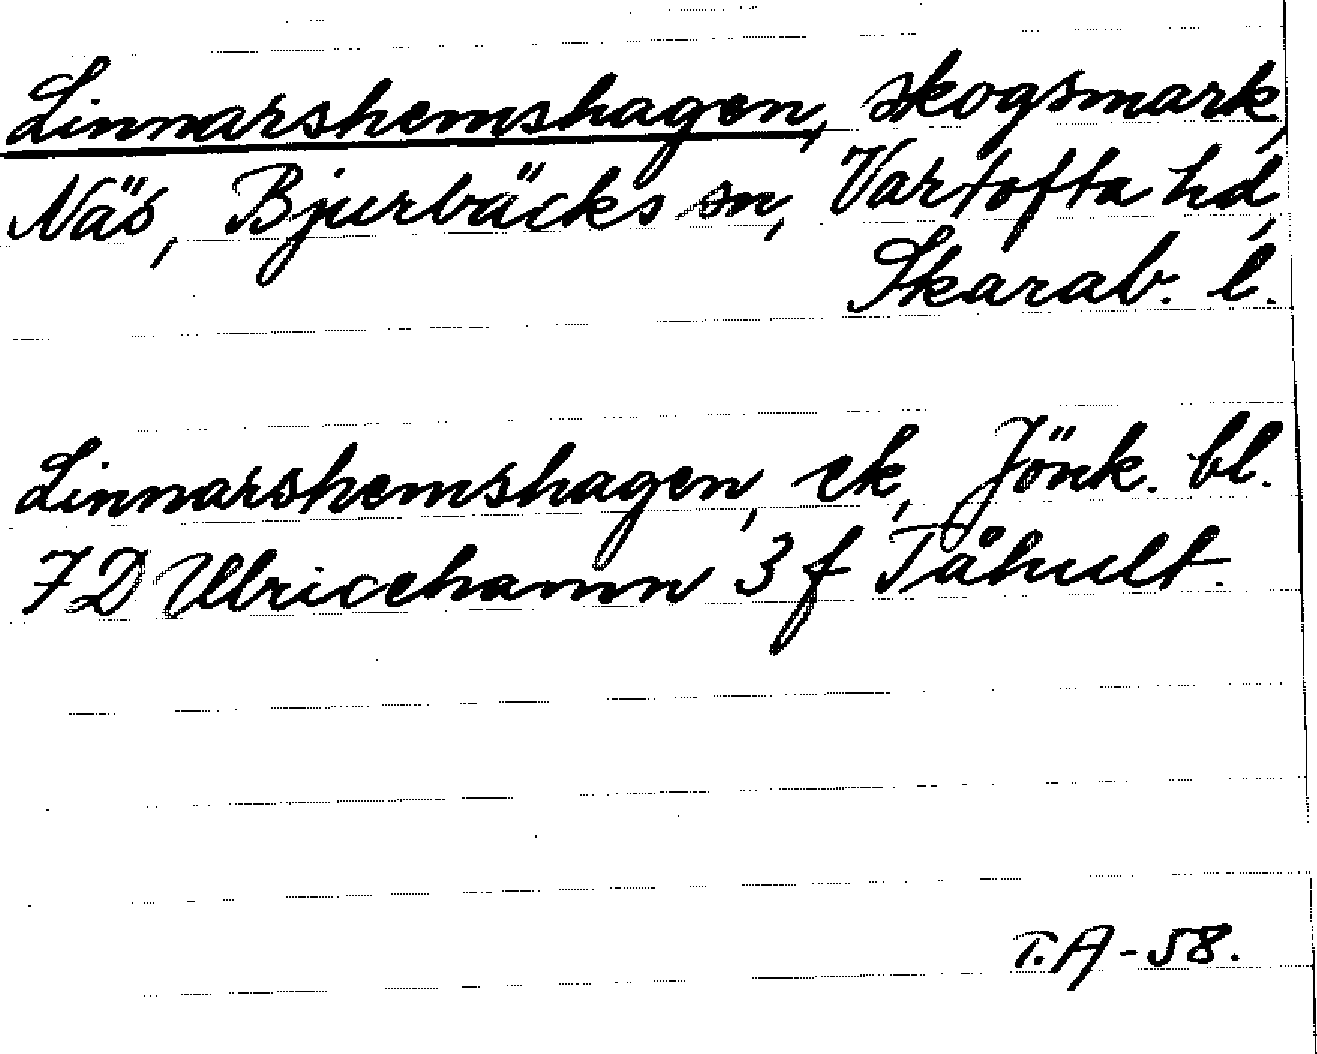 Linnarshemshagen, skogsmark,
Näs, Bjurbäcks sn, Vartofta hd,
Skarab. l.
Linnarshemshagen, ek, Jönk. bl.
7D Ulricehamn 3 f Tåhult.
T.A-58.